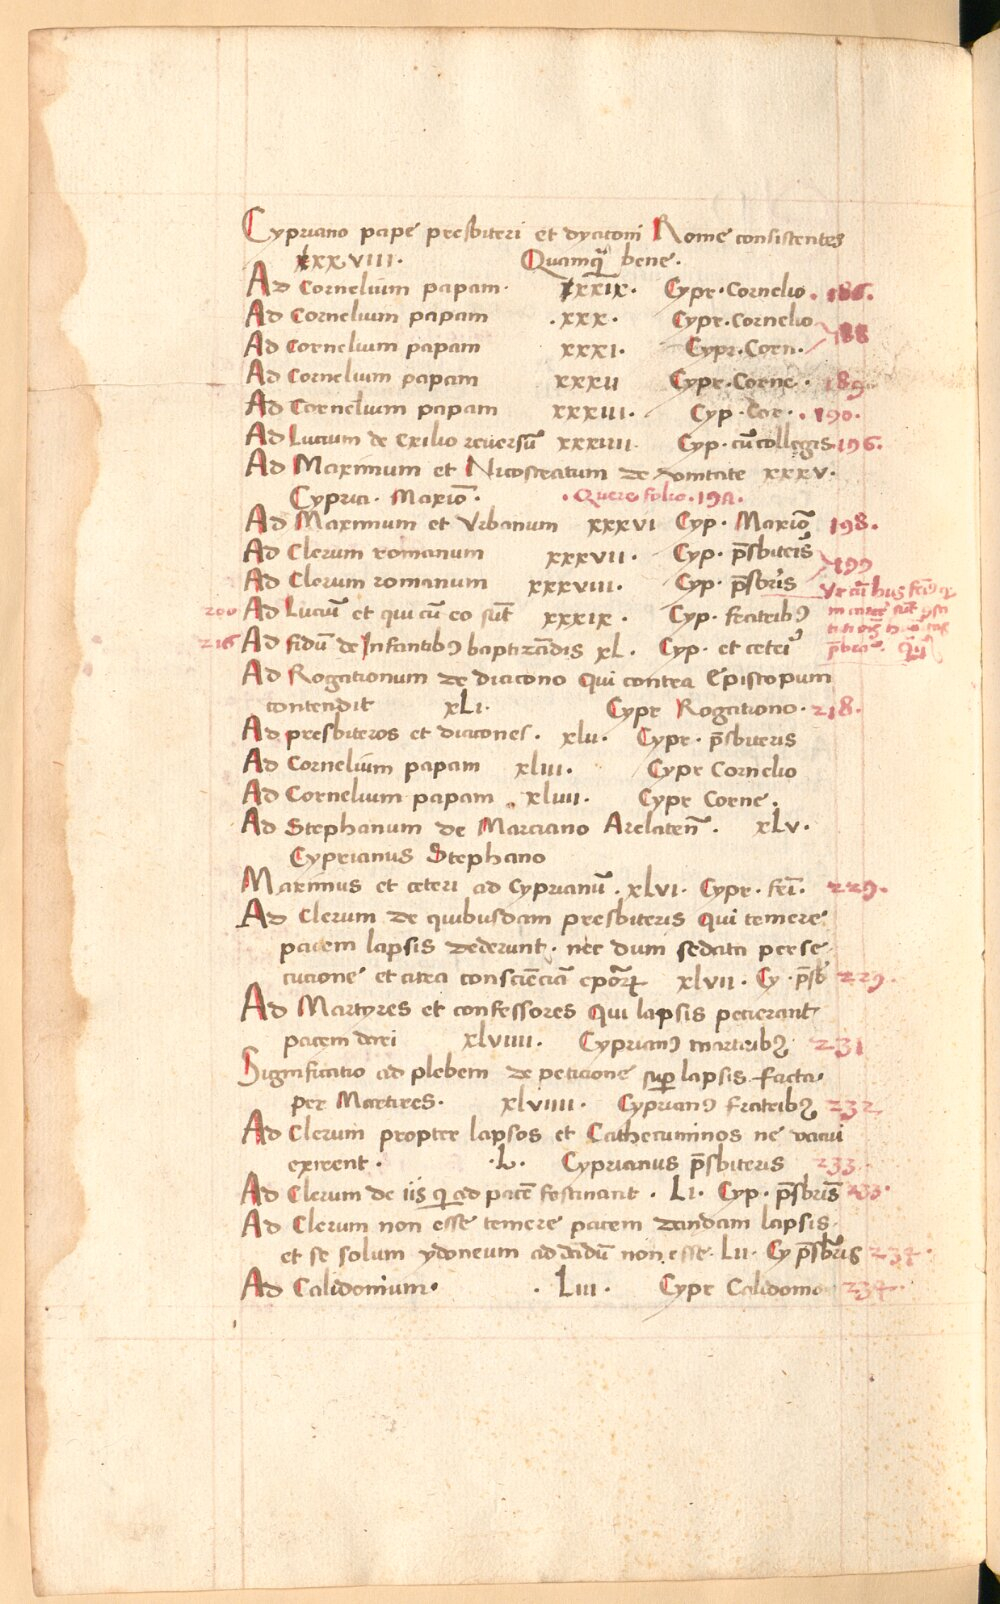 Cypriano pape presbiteri et dyaconi Rome consistentes
xxxviii. Quamq̃ bene.
Ad Cornelium papam. xxxix. Cypr. Cornelio. 186.
Ad Cornelium papam .xxx. Cypr. Cornelio
Ad Cornelium papam xxxi. Cypr. Corn. 188
Ad Cornelium papam xxxii Cypr. Corne. 189.
Ad Cornelium papam xxxiii. Cyp. Cor. . 190.
Ad Lucium de exilio reuersũ xxxiiii. Cyp. cũ collegis. 196.
Ad Maximum et Nicostratum de vnitate xxxv.
Cypria. Maxiõ. . Quere folio. 191.
Ad Maximum et Vrbanum xxxvi Cyp. Maxiõ 198.
Ad Clerum romanum xxxvii. Cyp. p̃sbiteis
Ad Clerum romanum xxxviii. Cyp. p̃sbris 199
200 Ad Luciũ et qui cũ eo sũt xxxix. Cyp. fratribꝰ
216 Ad fidũ de Infantibꝰ baptizãdis xl. Cyp. et ceteri
Ad Rogationum de diacono Qui contra Episcopum
contendit xLi. Cypr Rogationo. 218.
Ad presbiteros et diacones. xlii. Cypr. p̃sbiteris
Ad Cornelium papam xliii. Cypr Cornelio
Ad Cornelium papam . xliiii. Cypr Corne.
Ad Stephanum de Marciano Arelateñ. xLv.
Cyprianus Stephano
Maximus et ceteri ad Cyprianũ. xLvi. Cypr. fr̃i. 229.
Ad Clerum de quibusdam presbiteris Qui temere
pacem lapsis dederunt. nec dum sedata perse
cucione et citra consciẽciã ep̃oꝝ xlvii. Cy. p̃sb 229.
Ad Martyres et confessores Qui lapsis petierant
pacem dari xlviii. Cyprianꝰ martiribꝫ 231
Significatio ad plebem de peticione sup̱ lapsis facta
per Martires. xlviiii. Cyprianꝰ fratribꝫ 232
Ad Clerum propter lapsos et Cathecuminos ne vacui
exirent. .L. Cyprianus p̃sbiteris 233
Ad Clerum de iis q̱ ad pacẽ festinant. Li. Cyp. p̃sbris 233.
Ad Clerum non esse temere pacem dandam lapsis.
et se solum ydoneum ad dãdũ non esse. Lii. Cy p̃sbris 234.
Ad Calidonium. . Liii. Cypr Calidonio 234.